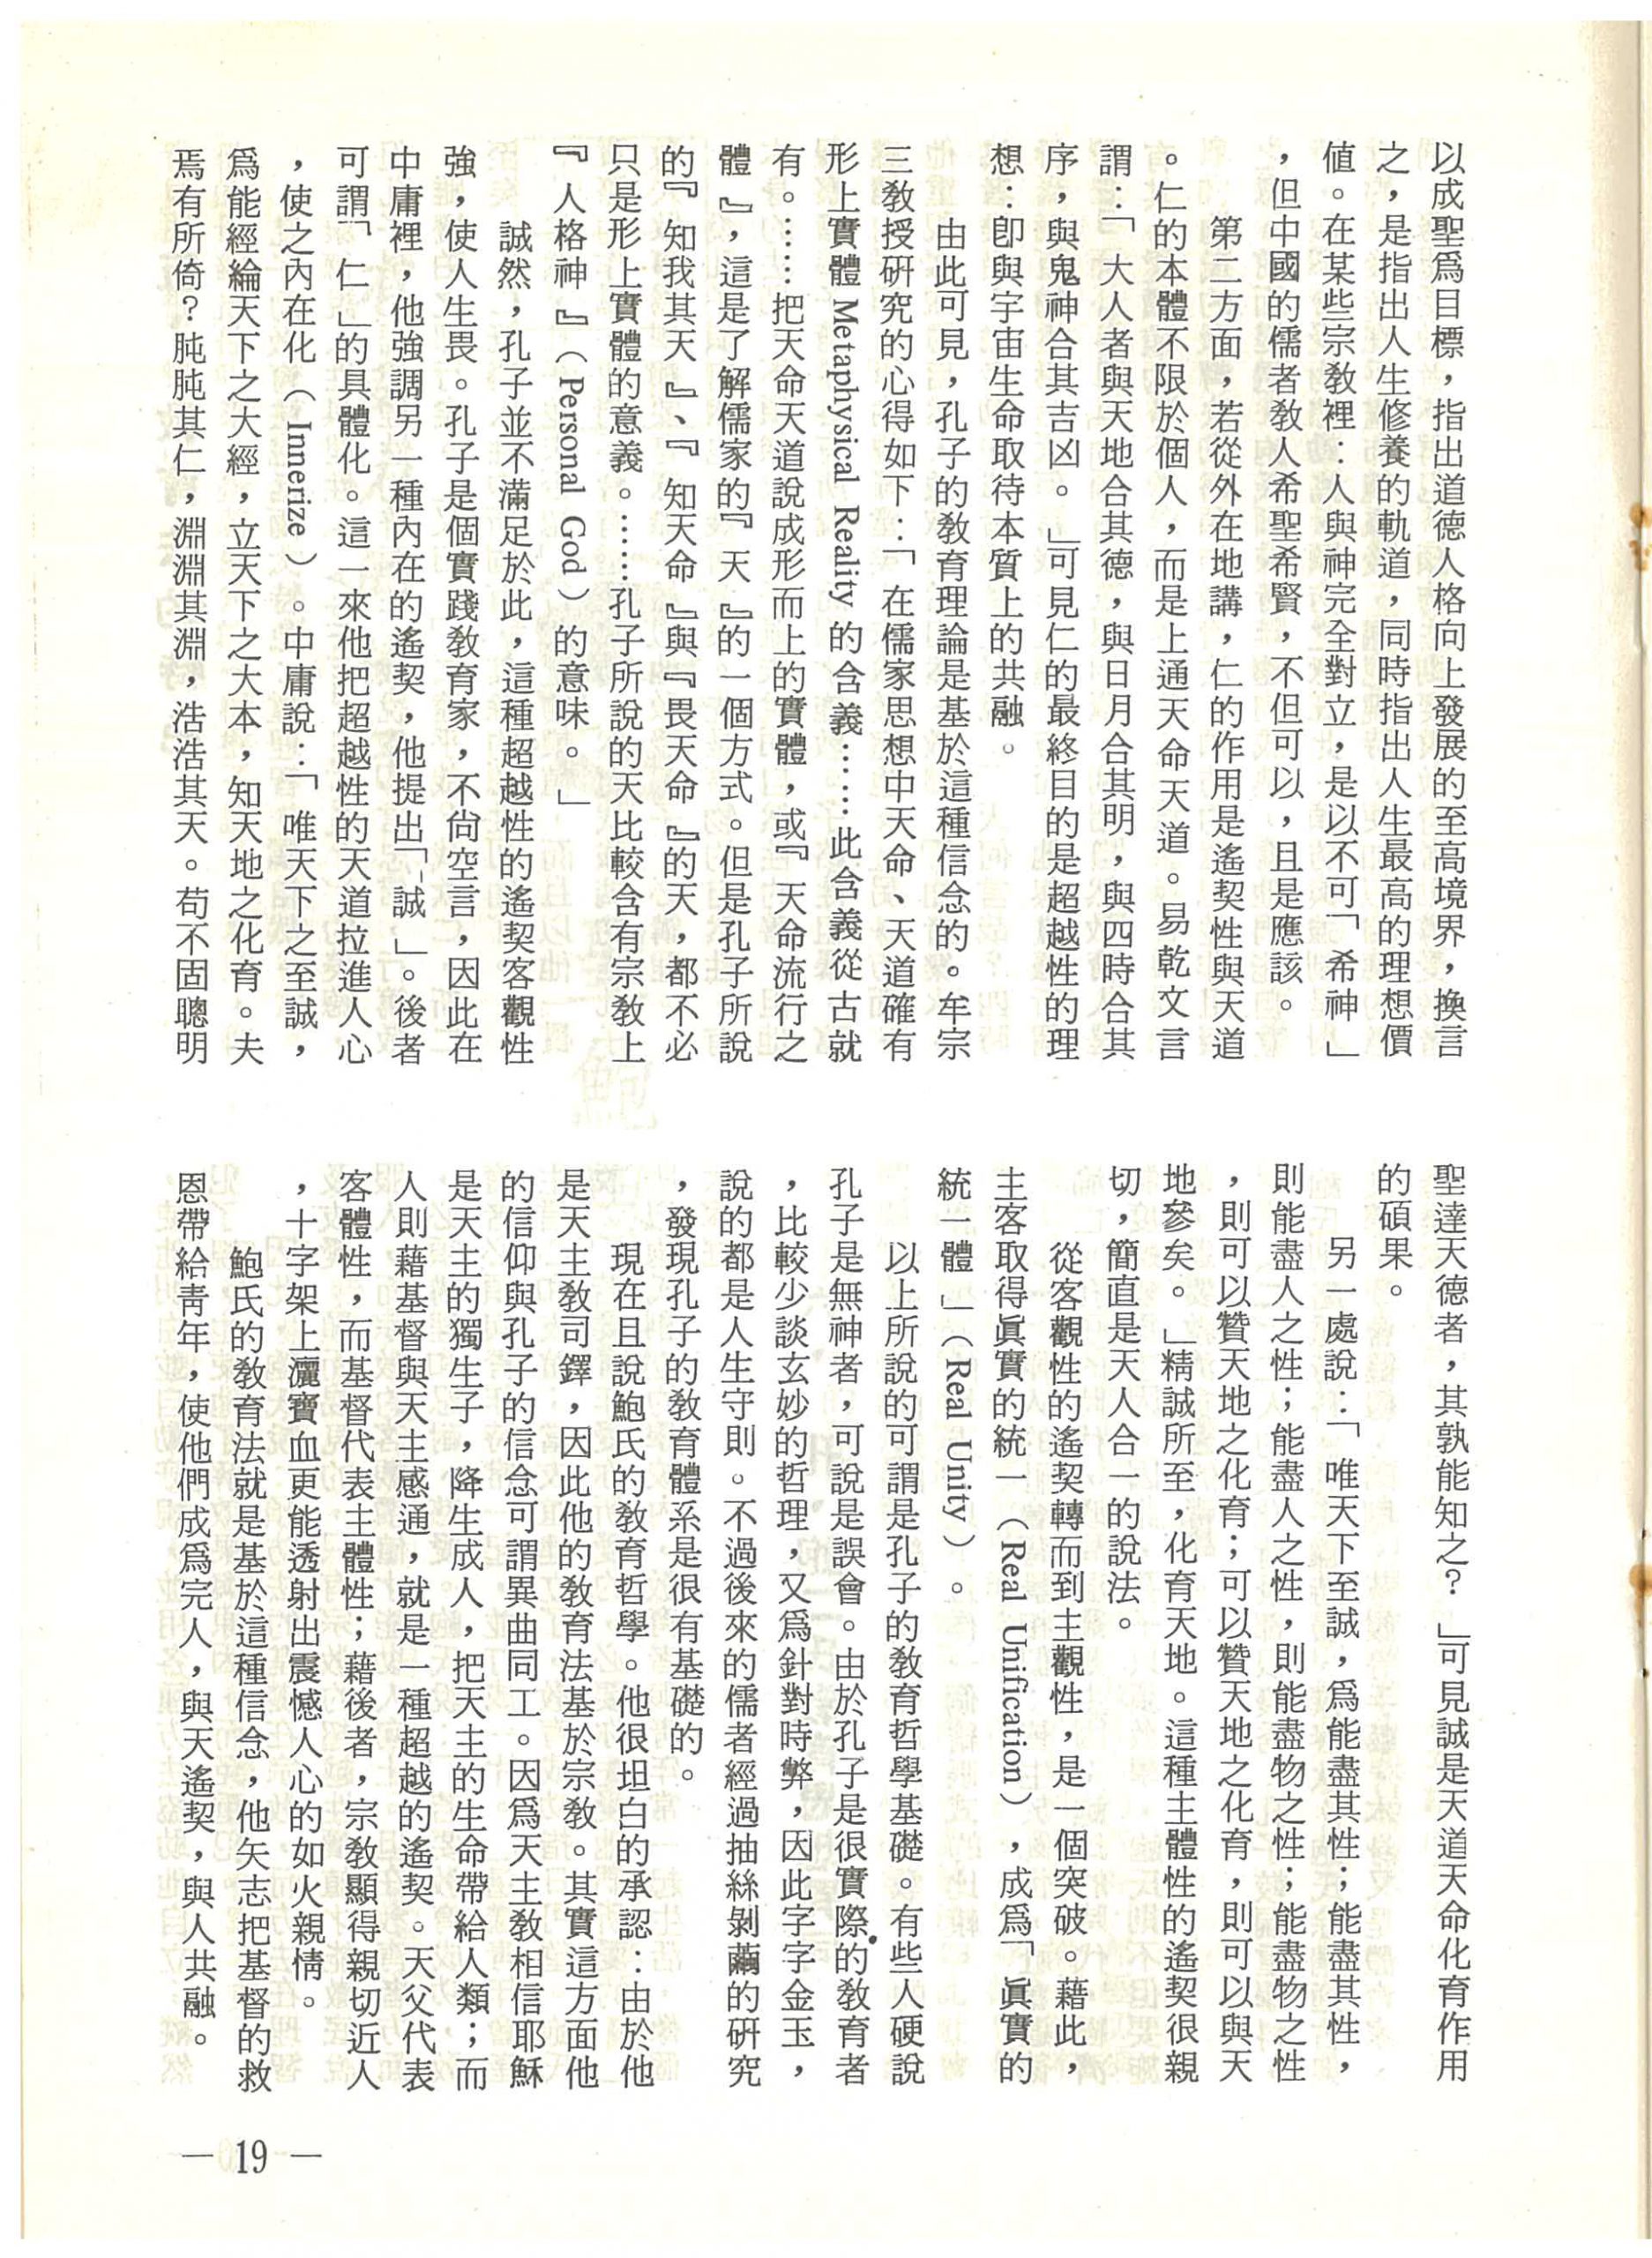 以成聖爲目標，指出道德人格向上發展的至高境界，換言
之，是指出人生修養的軌道，同時指出人生最高的理想價
値。在某些宗敎裡：人與神完全對立，是以不可「希神」
，但中國的儒者敎人希聖希賢，不但可以，且是應該。
第二方面，若從外在地講，仁的作用是遙契性與天道
。仁的本體不限於個人，而是上通天命天道。易乾文言
謂：「大人者與天地合其德，與日月合其明，與四時合其
序，與鬼神合其吉凶。」可見仁的最終目的是超越性的理
想：卽與宇宙生命取待本質上的共融。
由此可見，孔子的敎育理論是基於這種信念的。牟宗
三敎授硏究的心得如下：「在儒家思想中天命、天道確有
形上實體 Metaphysical Reality 的含義……此含義從古就
有。……把天命天道說成形而上的實體，或『天命流行之
體』，這是了解儒家的『天』的一個方式。但是孔子所說
的『知我其天』、『知天命』與『畏天命』的天，都不必
只是形上實體的意義。……孔子所說的天比較含有宗敎上
『人格神』（Personal God）的意味。」
誠然，孔子並不滿足於此，這種超越性的遙契客觀性
強，使人生畏。孔子是個實踐敎育家，不尙空言，因此在
中庸裡，他強調另一種內在的遙契，他提出「誠」。後者
可謂「仁」的具體化。這一來他把超越性的天道拉進人心
，使之內在化（Innerize）。中庸說：「唯天下之至誠，
爲能經綸天下之大經，立天下之大本，知天地之化育。夫
焉有所倚？肫肫其仁，淵淵其淵，浩浩其天。苟不固聰明
聖達天德者，其孰能知之？」可見誠是天道天命化育作用
的碩果。
另一處說：「唯天下至誠，爲能盡其性；能盡其性，
則能盡人之性；能盡人之性，則能盡物之性；能盡物之性
，則可以贊天地之化育；可以贊天地之化育，則可以與天
地參矣。」精誠所至，化育天地。這種主體性的遙契很親
切，簡直是天人合一的說法。
從客觀性的遙契轉而到主觀性，是一個突破。藉此，
主客取得眞實的統一（Real Unification），成爲「眞實的
統一體」（Real Unity）。
以上所說的可謂是孔子的敎育哲學基礎。有些人硬說
孔子是無神者，可說是誤會。由於孔子是很實際的敎育者
，比較少談玄妙的哲理，又爲針對時弊，因此字字金玉，
說的都是人生守則。不過後來的儒者經過抽絲剝繭的硏究
，發現孔子的敎育體系是很有基礎的。
現在且說鮑氏的敎育哲學。他很坦白的承認：由於他
是天主敎司鐸，因此他的敎育法基於宗敎。其實這方面他
的信仰與孔子的信念可謂異曲同工。因爲天主敎相信耶穌
是天主的獨生子，降生成人，把天主的生命帶給人類；而
人則藉基督與天主感通，就是一種超越的遙契。天父代表
客體性，而基督代表主體性；藉後者，宗敎顯得親切近人
，十字架上灑寶血更能透射出震憾人心的如火親情。
鮑氏的敎育法就是基於這種信念，他矢志把基督的救
恩帶給靑年，使他們成爲完人，與天遙契，與人共融。
— 19 —